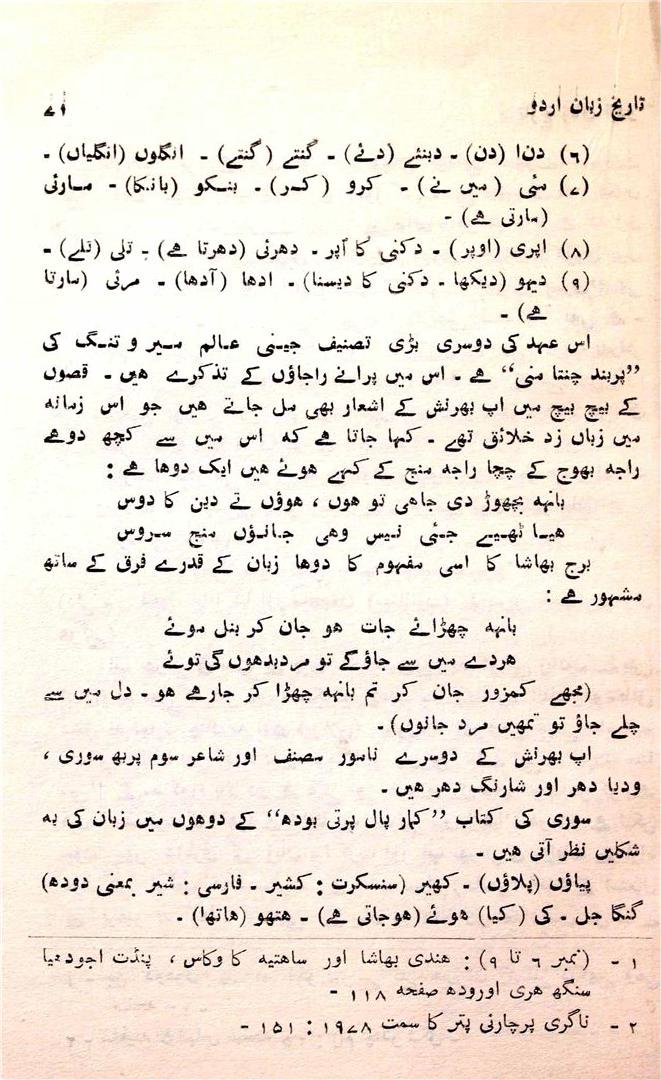 تاریخ زبان اردو
۷۱
(۶) دنا (دن) ۔ دہنئے (دئے) ۔ گنتے (گنتے) ۔ انگلوں (انگلیاں) ۔
(۷) مئی (میں نے) ۔ کرو (کر) ۔ بنکو (بانکا) ۔ مارئی
(مارتی ہے) ۔
(۸) اپری (اوپر) ۔ دکنی کا اُپر ۔ دھرئی (دھرتا ہے) ۔ تلی (تلے) ۔
(۹) دیہو (دیکھا ۔ دکنی کا دیسنا) ۔ ادھا (آدھا) ۔ مرئی (مارتا
ہے) ۔
اس عہد کی دوسری بڑی تصنیف جینی عالم میر و تنگ کی
”پربند چنتا منی“ ہے ۔ اس میں پرانے راجاؤں کے تذکرے ہیں ۔ قصوں
کے بیچ بیچ میں اپ بھرنش کے اشعار بھی مل جاتے ہیں جو اس زمانہ
میں زباں زد خلائق تھے ۔ کہا جاتا ہے کہ اس میں سے کچھ دوہے
راجہ بھوج کے چچا راجہ منج کے کہے ہوئے ہیں ایک دوہا ہے :
بانہہ بچھوڑ دی جاہی تو ہوں ، ہوؤں تے دین کا دوس
ہیا ٹھیے جئی نیس وہی جانؤں منج سروس
برج بھاشا کا اسی مفہوم کا دوہا زبان کے قدرے فرق کے ساتھ
مشہور ہے :
بانہہ چھڑائے جات ہو جان کر بنل موئے
ہردے میں سے جاؤگے تو مرد بدھوں گی توئے
(مجھے کمزور جان کر تم بانہہ چھڑا کر جارہے ہو ۔ دل میں سے
چلے جاؤ تو تمھیں مرد جانوں) ۔
اپ بھرنش کے دوسرے نامور مصنف اور شاعر سوم پربھ سوری ،
ودیا دھر اور شارنگ دھر ہیں ۔
سوری کی کتاب ”کمار پال پرتی بودھ“ کے دوہوں میں زبان کی یہ
شکلیں نظر آتی ہیں ۔
پیاؤں (پلاؤں) ۔ کھیر (سنسکرت : کشیر ۔ فارسی : شیر بمعنی دودھ)
گنگا جل ۔ کی (کیا) ہوئے (ہوجاتی ہے) ۔ ہتھو (ہاتھا) ۔
۱ ۔ (نمبر ۶ تا ۹) : ہندی بھاشا اور ساھتیہ کا وکاس ، پنڈت اجودھیا
سنگھ ہری اورودھ صفحہ ۱۱۸ ۔
۲ ۔ ناگری پرچارنی پتر کا سمت ۱۹۷۸ : ۱۵۱ ۔